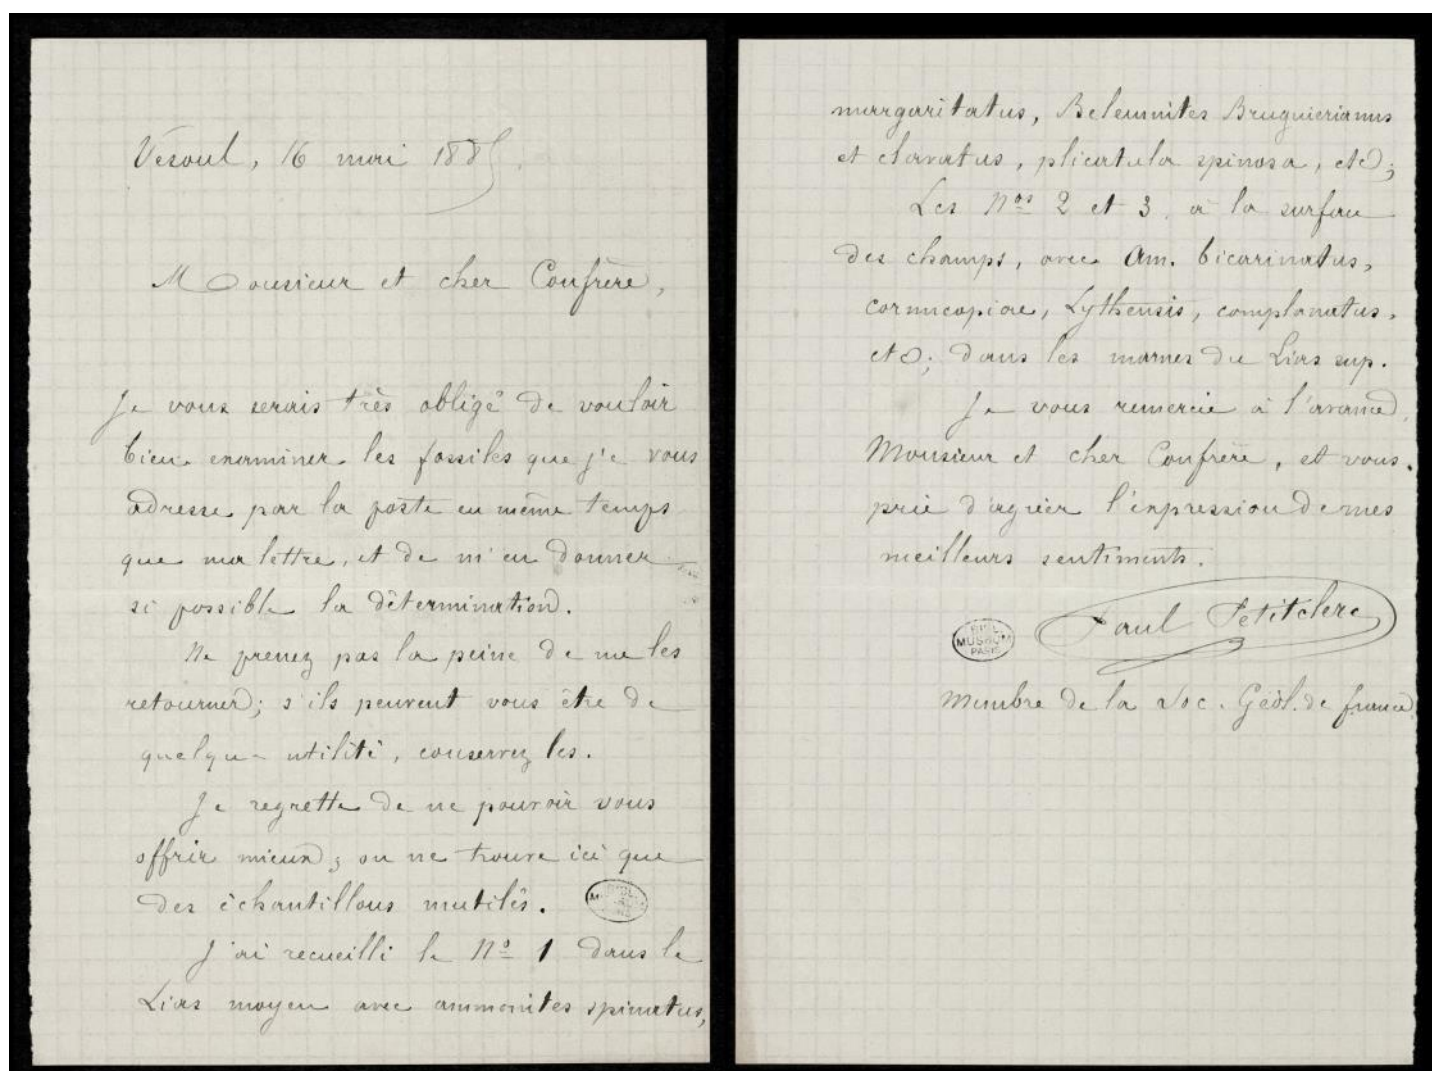 Vesoul, 16 mai 1885.
Monsieur et cher Confrère,
Je vous serais très obligé de vouloir
bien examiner les fossiles que je vous
adresse par la poste en même temps
que ma lettre, et de m'en donner
si possible la détermination.
Ne prenez pas la peine de me les
retourner; s'ils peuvent vous être de
quelque utilité, conservez les.
Je regrette de ne pouvoir vous
offrir mieux; on ne trouve ici que
des échantillons mutilés.
J'ai recueilli le Nº 1 dans le
Lias moyen avec ammonites spinatus,
margaritatus, Belemnites Bruguierianus
et clavatus, plicatula spinosa, etc;
Les Nos 2 et 3 à la surface
des champs, avec Am. bicarinatus,
cornucopiae, Lythensis, complanatus,
etc; dans les marnes du Lias sup.
Je vous remercie à l'avance,
Monsieur et cher Confrère, et vous
prie d'agréer l'expression de mes
meilleurs sentiments.
Paul Petitclerc
BIBL
MUSEUM
PARIS
Membre de la Soc. Géol. de france